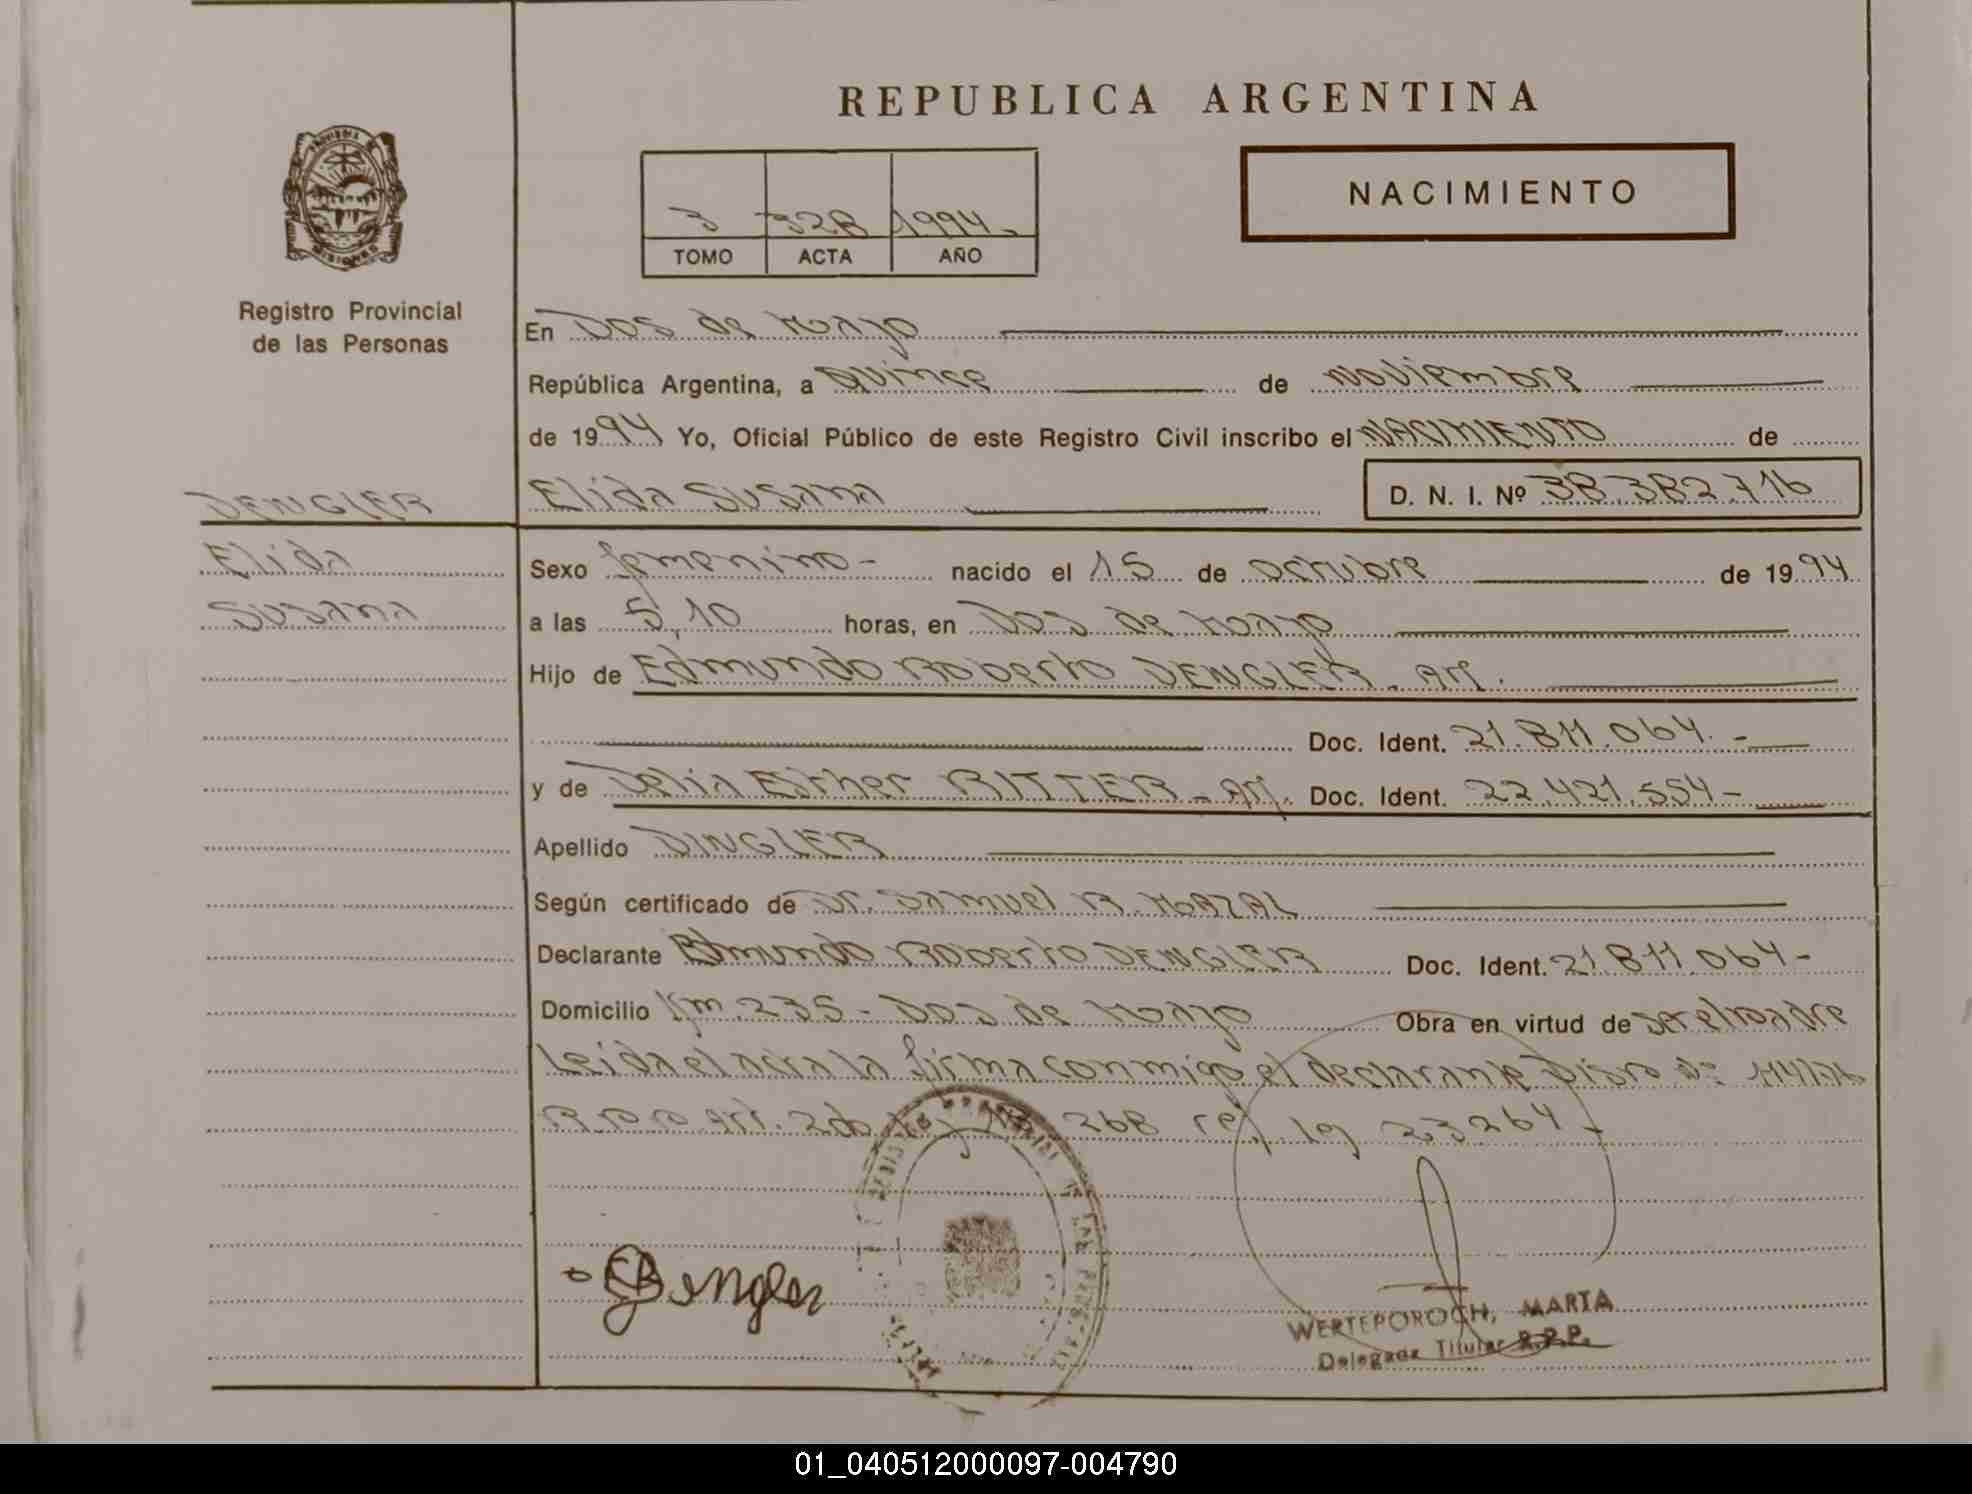 REPUBLICA ARGENTINA
NACIMIENTO
3 328 1994
TOMO ACTA AÑO
PROVINCIA DE MISIONES
Registro Provincial
de las Personas
En Dos de Mayo
República Argentina, a Quince de noviembre
de 1994 Yo, Oficial Público de este Registro Civil inscribo el NACIMIENTO de
DENGLER
Elida Susana D. N. I. Nº 38.382.716
Elida
Susana
Sexo femenino- nacido el 15 de octubre de 1994
a las 5,10 horas, en Dos de Mayo
Hijo de Edmundo Roberto DENGLER - Arg.
Doc. Ident. 21.811.064.-
y de Delia Esther RITTER - Arg. Doc. Ident. 22.421.554-
Apellido DINGLER
Según certificado de Dr. Samuel R.
Declarante Edmundo Roberto DENGLER Doc. Ident. 21.811.064-
Domicilio Km. 235 - Dos de Mayo Obra en virtud de ser el padre
Leida el acta la firma conmigo el declarante
Art. 2do 268 ley 23264-
Dengler
WERTEPOROCH, MARTA
Delegada Titular R.P.P.
01_040512000097-004790